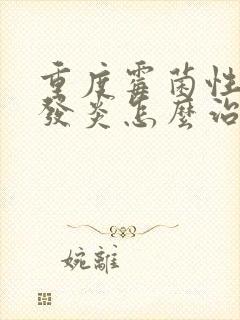 重度霉菌性
發炎怎麼治
婉離